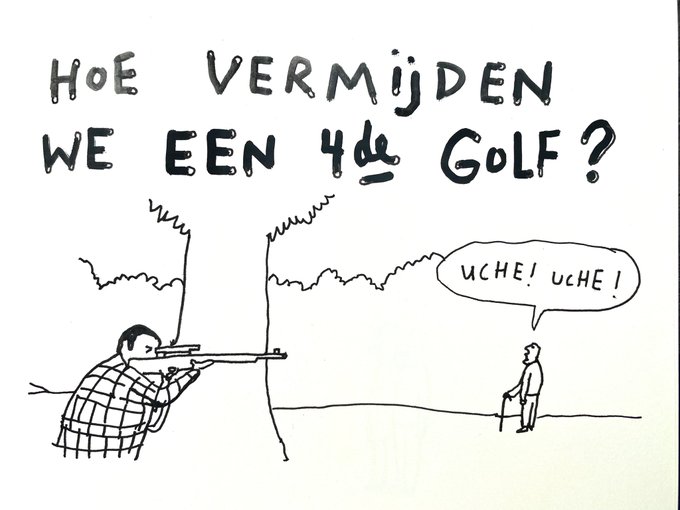 HOE VERMIJDEN
WE EEN 4de GOLF?
UCHE! UCHE!